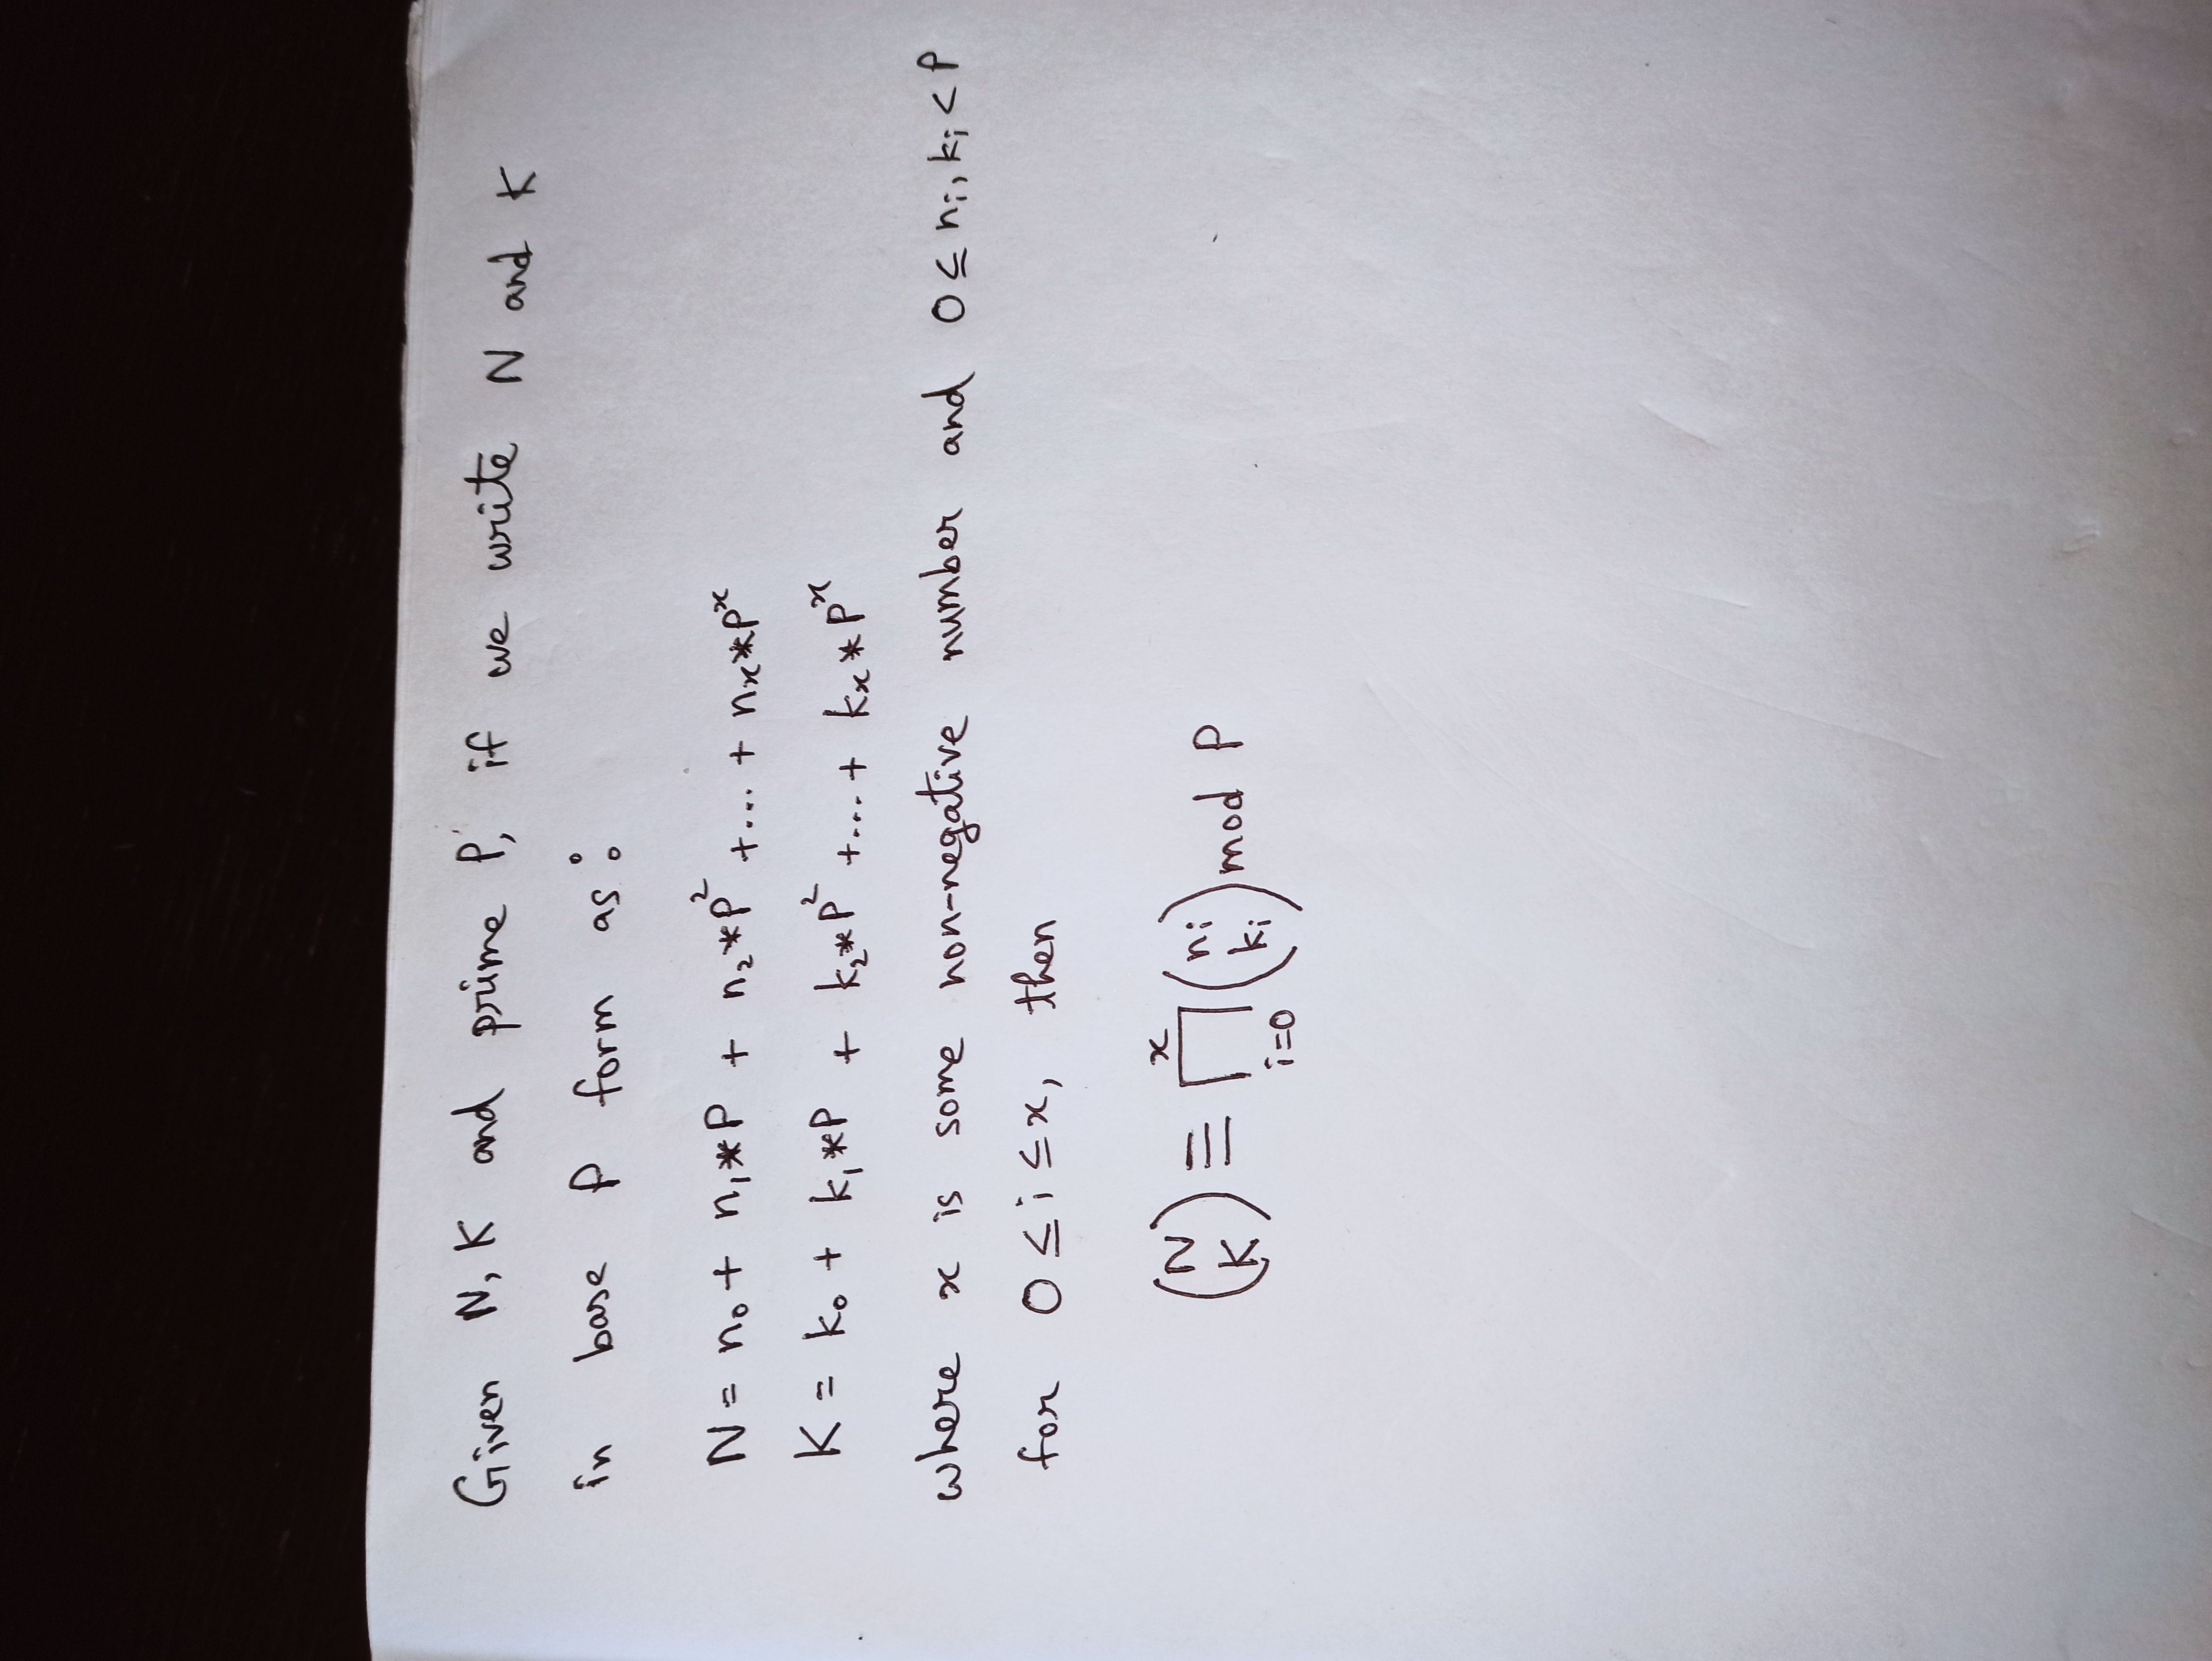 Given N, K and prime P, if we write N and K
in base P form as:
N = n₀ + n₁*P + n₂*P² +...+ nₓ*Pˣ
K = k₀ + k₁*P + k₂*P² +...+ kₓ*Pˣ
where x is some non-negative number and 0 ≤ nᵢ, kᵢ < P
for 0 ≤ i ≤ x, then
(N K) ≡ ∏ᵢ₌₀ˣ (nᵢ kᵢ) mod P